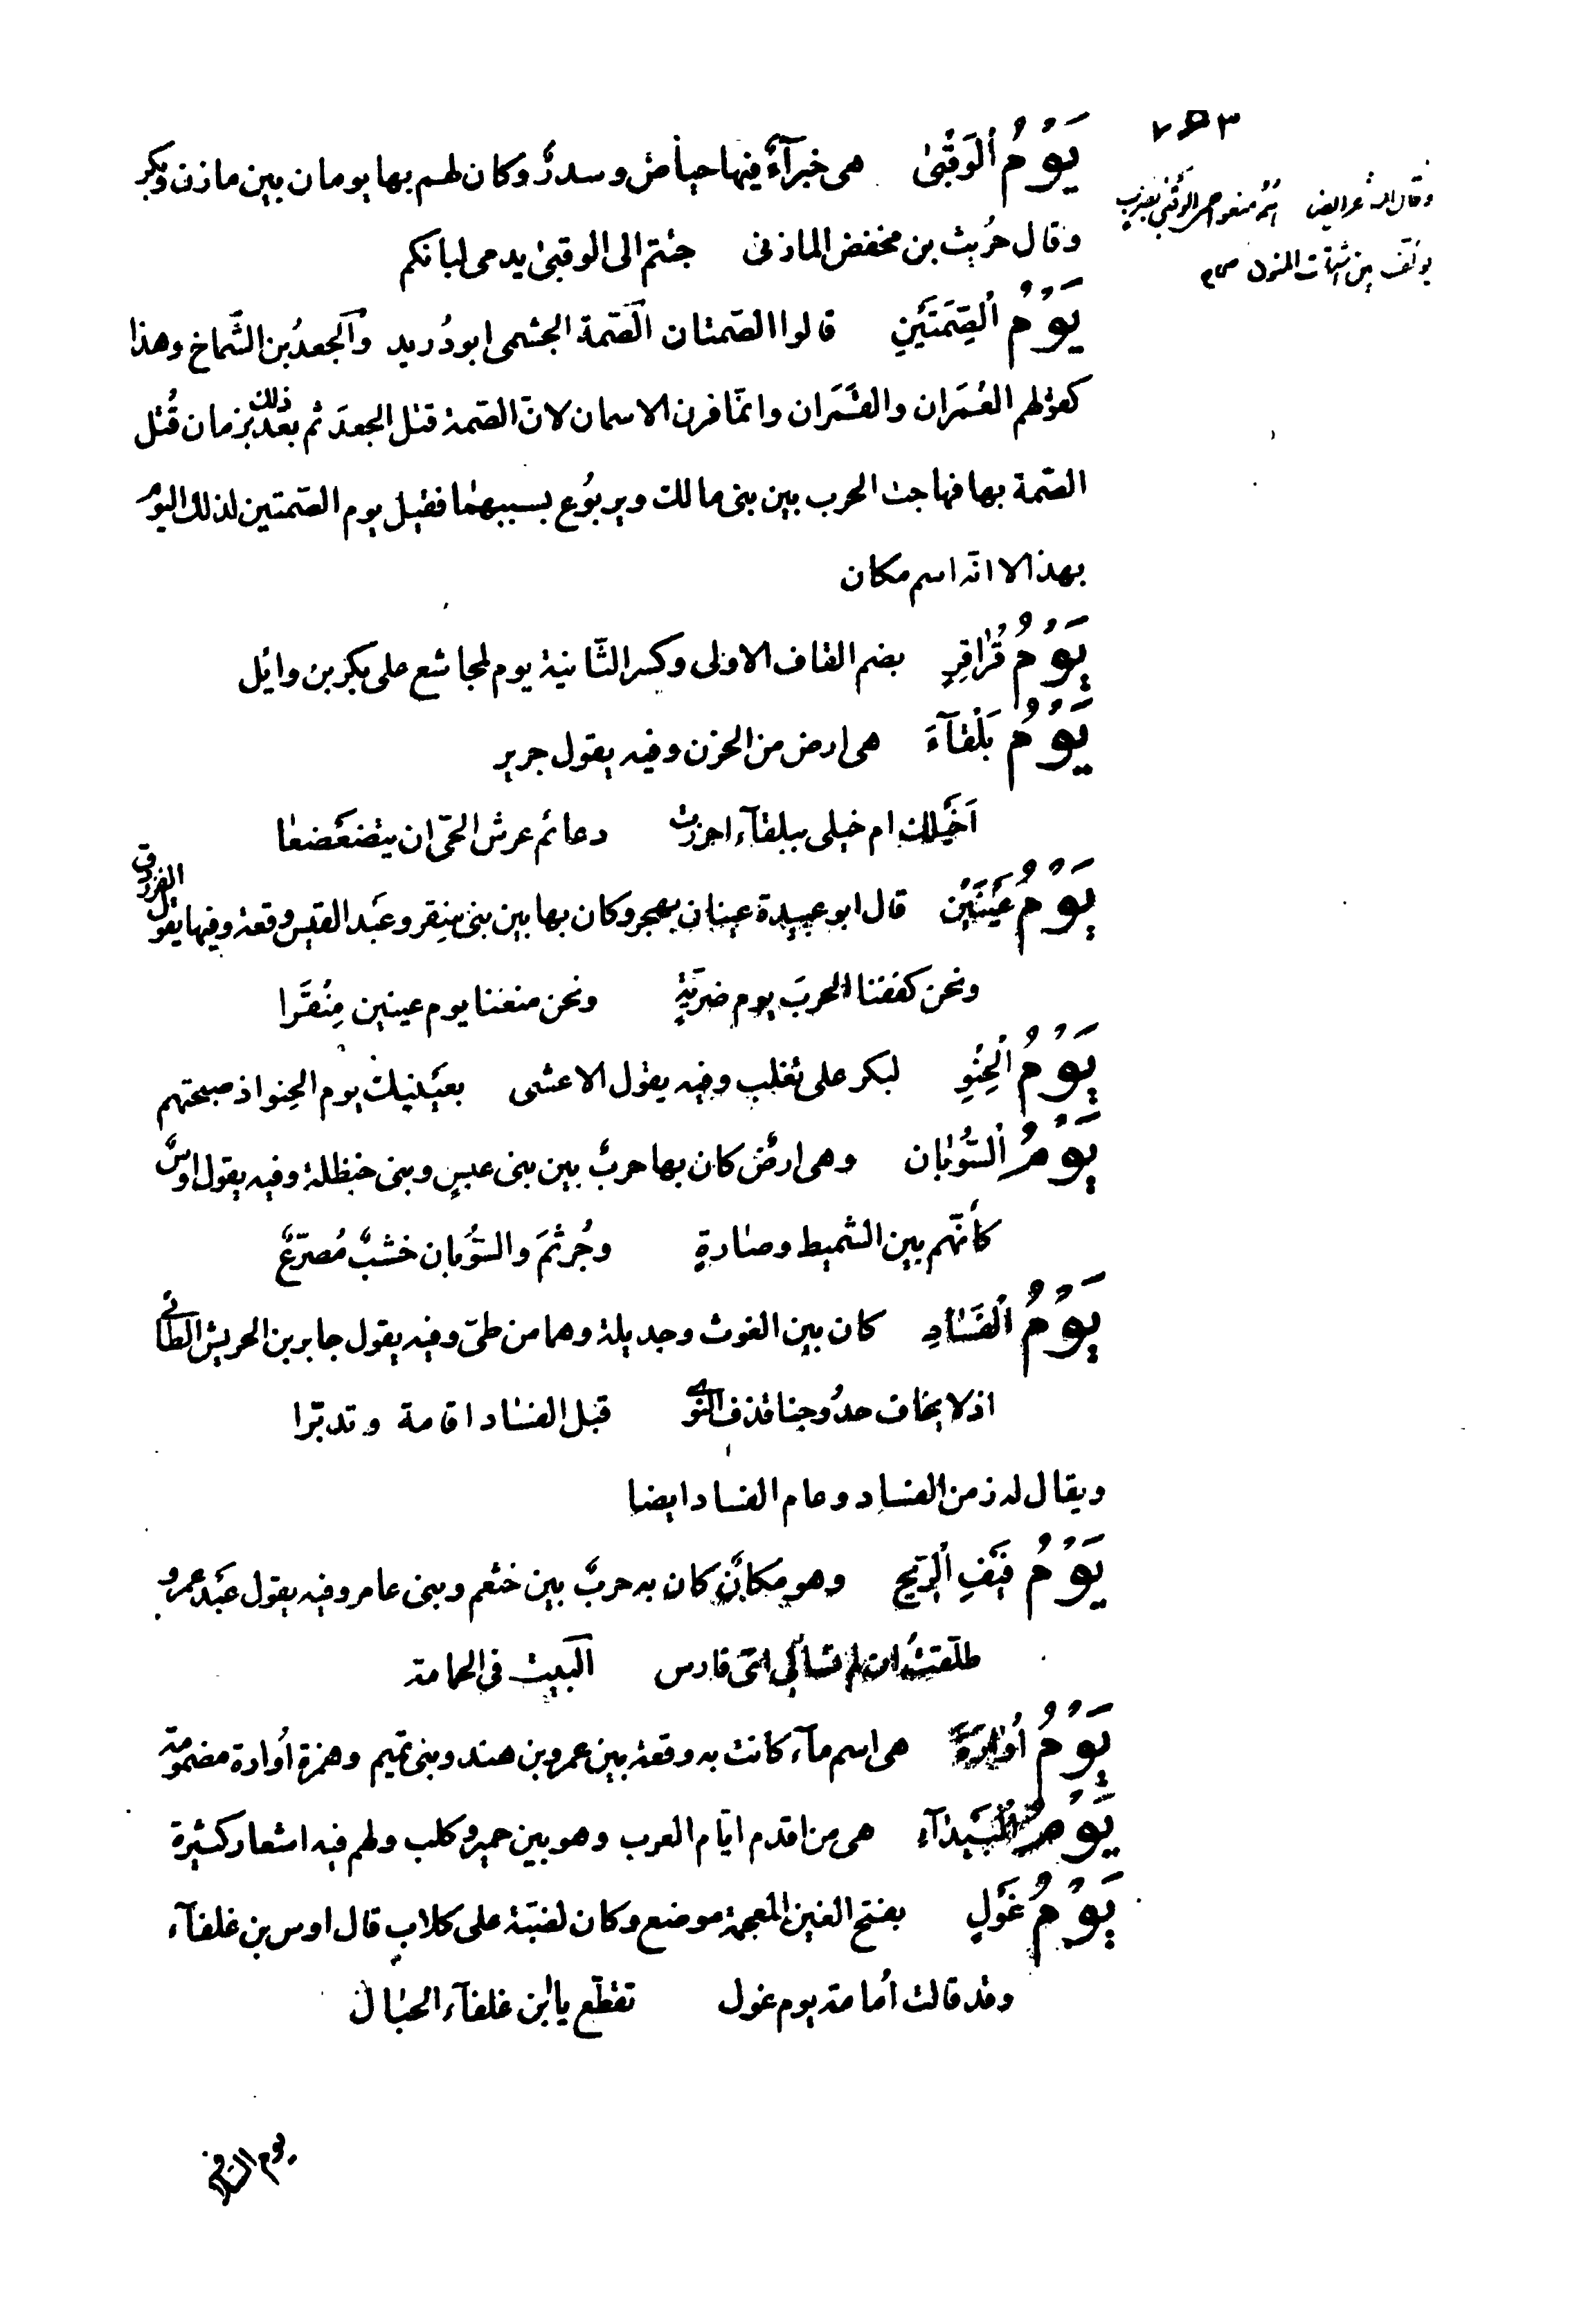 يَوْمُ ٱلوَقَبٰى هى خبرآءُ فيها حياض وسدرٌ وكان لهم بها يومان بين مازن وبكر
وقال حُريث بن محفض المازنى جئتم الى الوقبىٰ يدمى لباتكم
يَوْمُ ٱلصِّمَتَيْنِ قالوا الصّمتان الصّمة الجشمى ابو دُريد والجعدُ بن الشّماخ وهذا
كقولهم العُمَران والقَمَران وانّما قرن الاسمان لانّ الصّمة قتل الجعدَ ثم بعد ذلك بزمان قُتل
الصّمة بها فهاجت الحرب بين بنى مالك ويربوُع بسببهما فقيل يوم الصّمتين لذلك اليوم
بهذا لا انّه اسم مكان
يَوْمُ قُرٰاقِرٍ بضم القاف الاولى وكسر الثّانية يوم لمجاشع على بكر بن وائل
يَوْمُ بَلْقٰآءَ هى ارض من الحزن وفيه يقول جرير
اَخَيلك ام خيلى ببلقآء احرزت دعائم عرش الحىّ ان يتضعضعا
يَوْمُ عَيْنَيْن قال ابو عبيدة عينان بهجر وكان بها بين بنى مِنِقر وعَبد القيس وقعة وفيها يقول الفرزدق
ونحن كففنا الحربَ يوم ضريّةٍ ونحن منعنا يوم عينين مِنْقَرا
يَوْمُ ٱلْحِنْوِ لبكر على تغلب وفيه يقول الاعشى بعَينيك يوم الحِنو اذ صبحتهم
يَوْمُ ٱلسُّوْبٰان وهى ارضٌ كان بها حربٌ بين بنى عبسٍ وبنى حنظلة وفيه يقول اوسٌ
كأنّهم بين الشميط وصٰارةٍ وجُرثمَ والسُّوبان خشبٌ مُصرّعٌ
يَوْمُ ٱلفَسٰادِ كان بين الغوث وجديلة وهما من طىّ وفيه يقول جابر بن الحريش الطائى
اذ لا يخاف حدُوجنا قذف النّوى قبل الفسٰاد اقامة وتديّرا
ويقال له زمن الفساد وعام الفساد ايضا
يَوْمُ فَيْفِ ٱلرِّيحِ وهو مكانٌ كان به حربٌ بين خثعم وبنى عامر وفيه يقول عَبد عمرو
طلّقتُ ان لم تسألى اىّ فارس البيت فى الحمامة
يَوْمُ أُوٰارَةَ هى اسم مآء كانت به وقعة بين عمرو بن هند وبنى تميم وهمزة أُوارة مضمومة
يَوْمُ ٱلْبَيْدٰآءِ هى من اقدم ايّام العرب وهو بين حمير وكلب ولهم فيه اشعار كثيرة
يَوْمُ غَوْلٍ بفتح الغين المعجمة موضع وكان لضبّة على كلابٍ قال اوس بن غلفآء
وقد قالت أُمامة يوم غول تقطّع يا ابن غلفآء الحبٰال